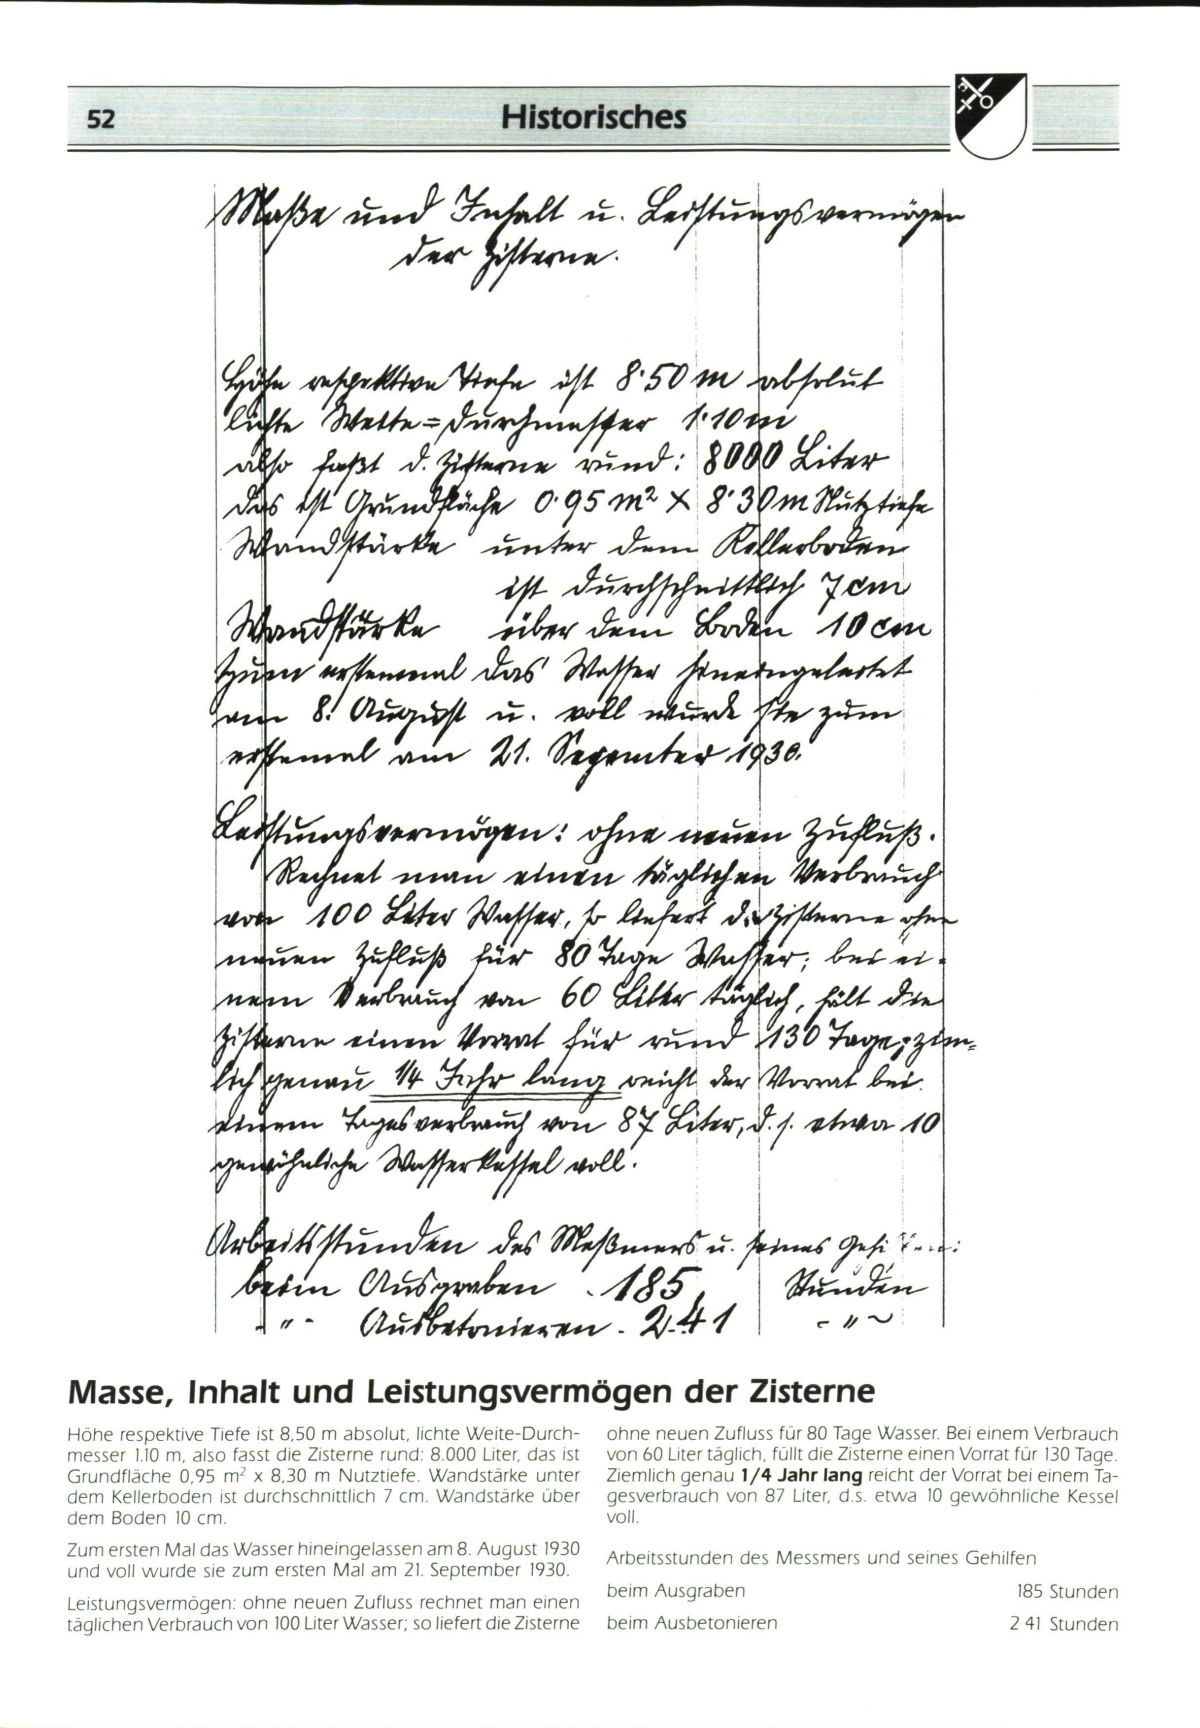 52
Historisches
Maße und Inhalt u. Leistungsvermögen
der Zisterne.
Höhe respektive Tiefe ist 8·50 m absolut
lichte Weite=Durchmesser 1·10 m
also faßt d. Zisterne rund: 8000 Liter
das ist Grundfläche 0·95 m² x 8·30 m Nutztiefe
Wandstärke unter dem Kellerboden
ist durchschnittlich 7 cm
Wandstärke über dem Boden 10 cm
Zum erstenmal das Wasser hineingeleitet
am 8. August u. voll wurde sie zum
erstemal am 21. September 1930.
Leistungsvermögen: ohne neuen Zufluß.
Rechnet man einen täglichen Verbrauch
von 100 Liter Wasser, so liefert die Zisterne ohne
neuen Zufluß für 80 Tage Wasser; bei ei-
nem Verbrauch von 60 Liter täglich, hält die
Zisterne einen Vorrat für rund 130 Tage; zim-
lich genau 1/4 Jahr lang reicht der Vorrat bei
einem Tagesverbrauch von 87 Liter, d. s. etwa 10
gewöhnliche Wasserkessel voll.
Arbeitsstunden des Meßmers u. seines Gehilfen:
beim Ausgraben 185 Stunden
-"- Ausbetonieren 241 -"-
Masse, Inhalt und Leistungsvermögen der Zisterne
Höhe respektive Tiefe ist 8,50 m absolut, lichte Weite-Durch-
messer 1.10 m, also fasst die Zisterne rund: 8.000 Liter, das ist
Grundfläche 0,95 m² x 8,30 m Nutztiefe. Wandstärke unter
dem Kellerboden ist durchschnittlich 7 cm. Wandstärke über
dem Boden 10 cm.
Zum ersten Mal das Wasser hineingelassen am 8. August 1930
und voll wurde sie zum ersten Mal am 21. September 1930.
Leistungsvermögen: ohne neuen Zufluss rechnet man einen
täglichen Verbrauch von 100 Liter Wasser; so liefert die Zisterne
ohne neuen Zufluss für 80 Tage Wasser. Bei einem Verbrauch
von 60 Liter täglich, füllt die Zisterne einen Vorrat für 130 Tage.
Ziemlich genau 1/4 Jahr lang reicht der Vorrat bei einem Ta-
gesverbrauch von 87 Liter, d.s. etwa 10 gewöhnliche Kessel
voll.
Arbeitsstunden des Messmers und seines Gehilfen
beim Ausgraben 185 Stunden
beim Ausbetonieren 2 41 Stunden